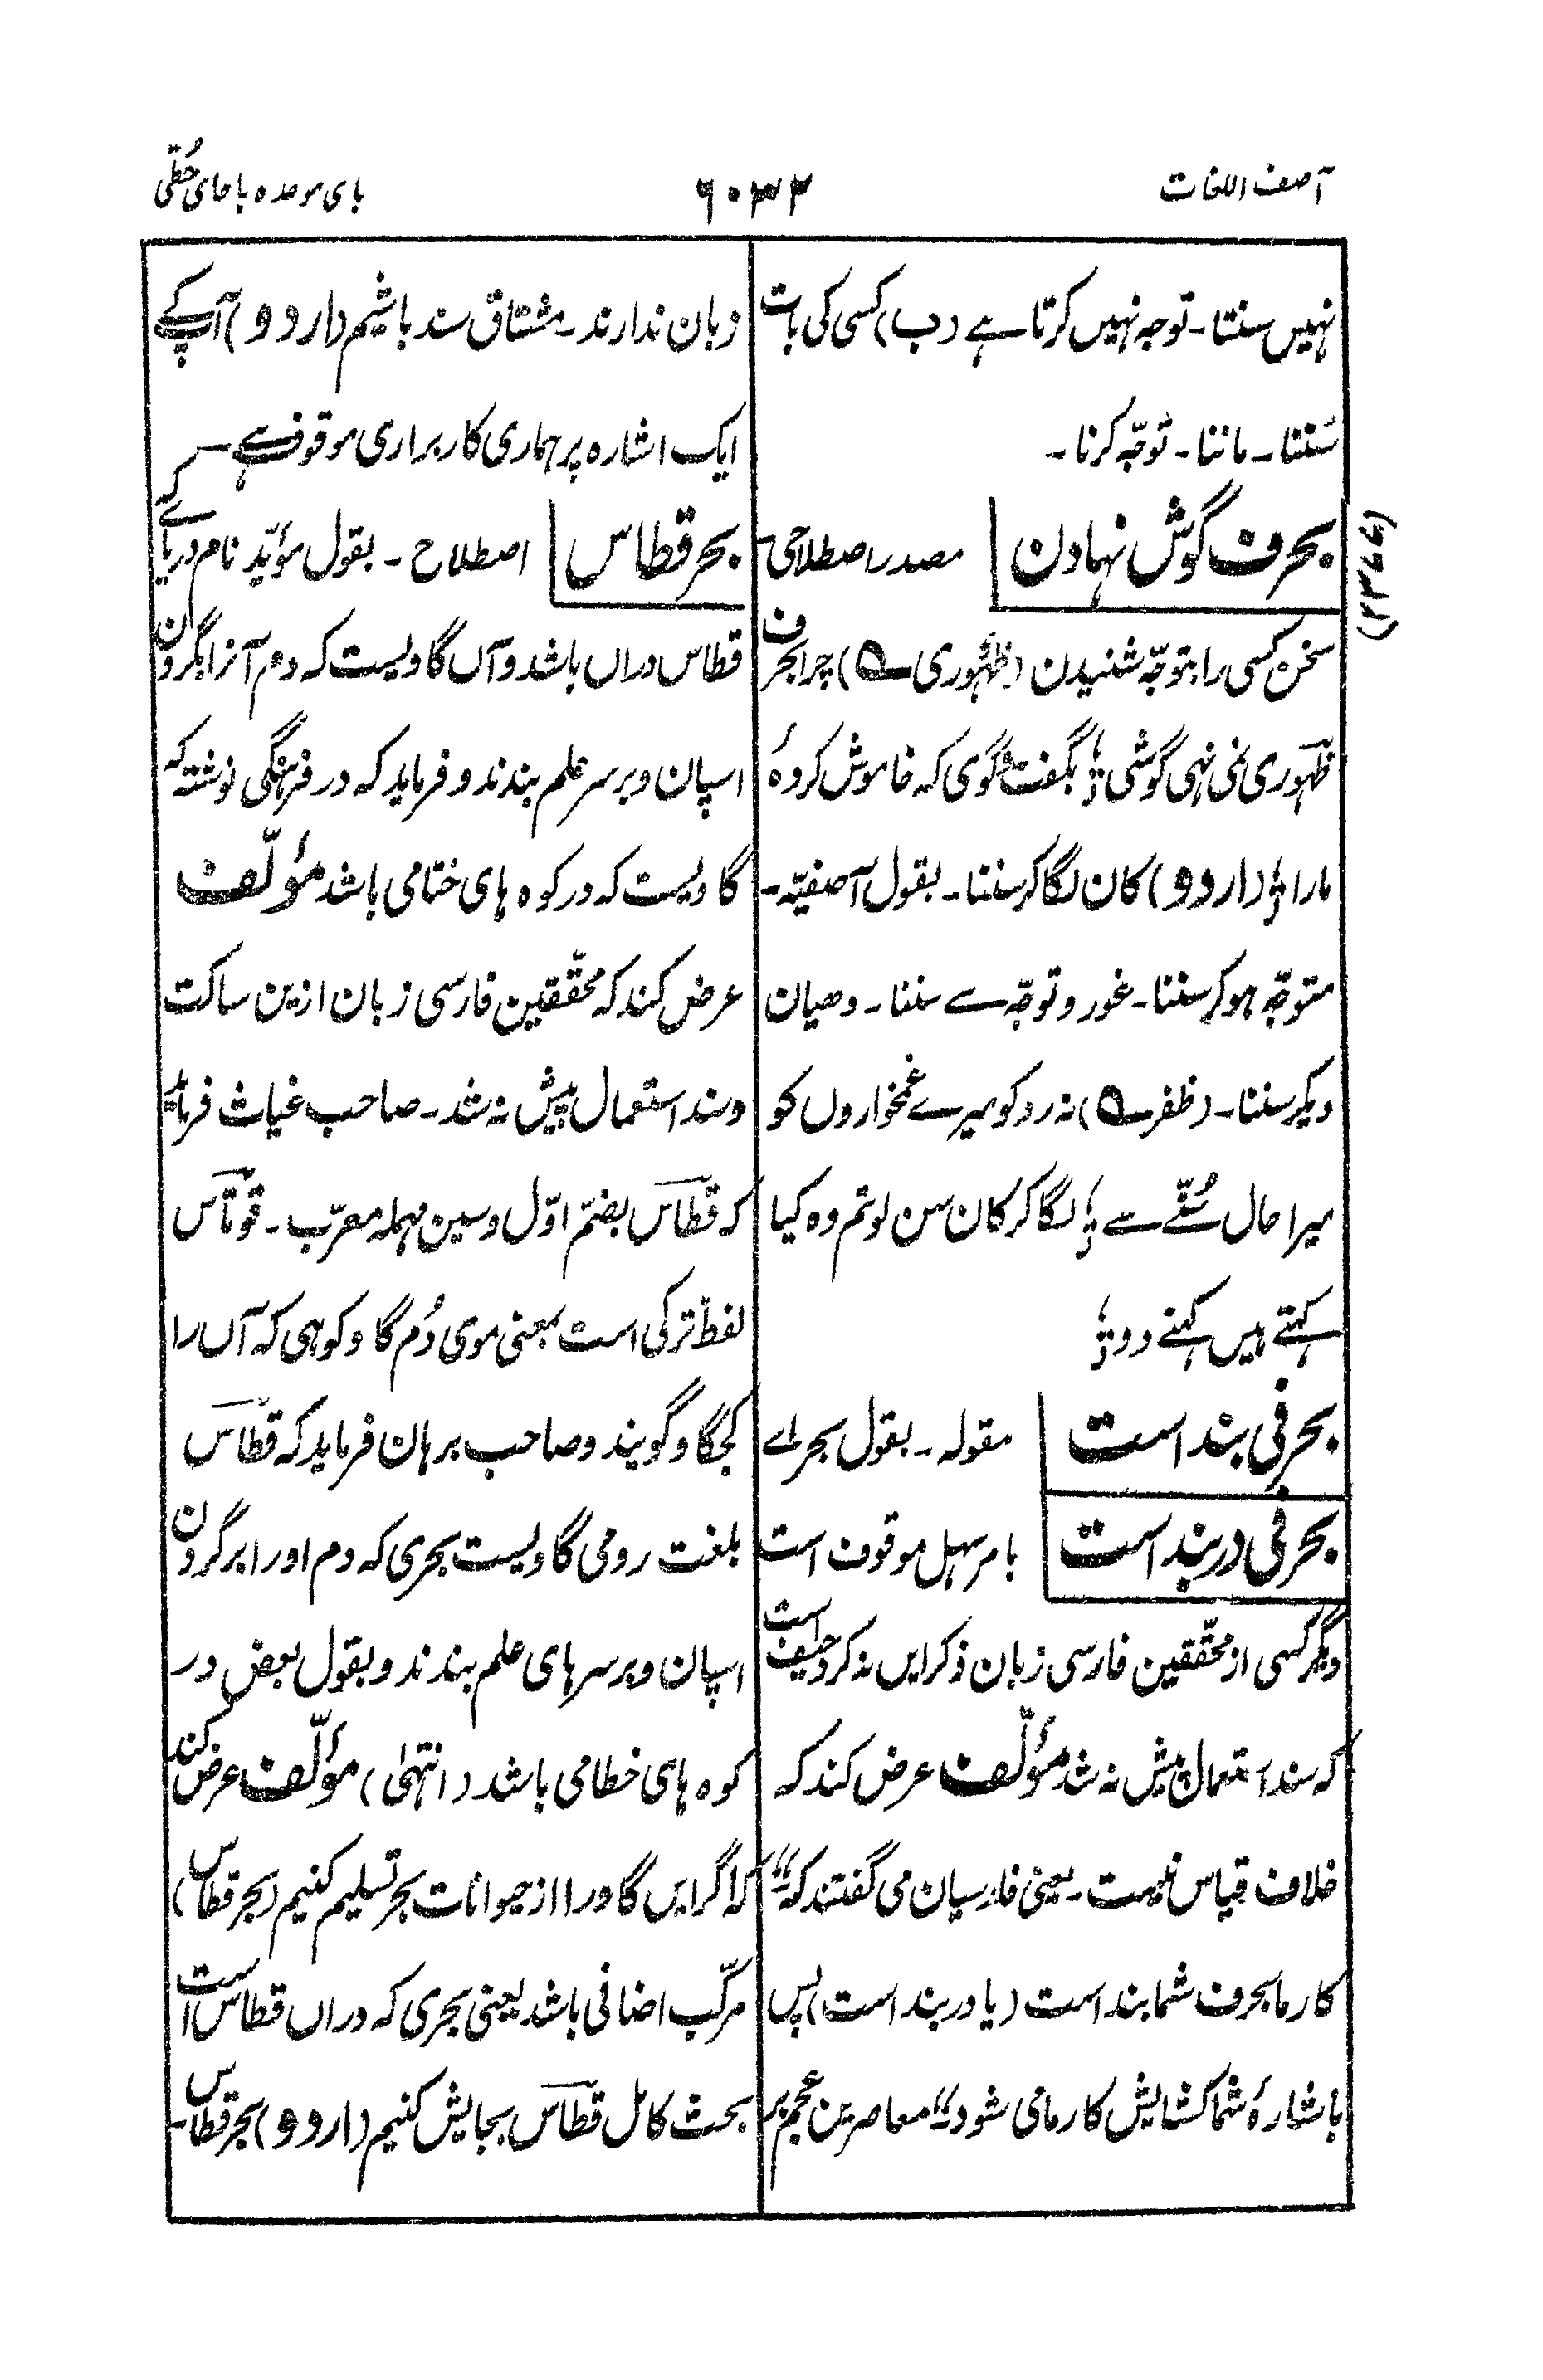 آصف اللغات
۶۰۳۲
بای موحده باحای حُطّی
نہیں سنتا۔ توجہ نہیں کرتا ہے (ب) کسی کی بات
سُننا۔ ماننا۔ توجّہ کرنا۔
بحرف گوش نہادن مصدر اصطلاحی۔
سخن کسی را بتوجّہ شنیدن (ظہوری ے) چرا بحرف
ظہوری نمی نہی گوشی ؛ بگفت وگوی کہ خاموش کردۂ
مارا ؛ (اردو) کان لگا کر سننا۔ بقول آصفیّہ۔
متوجّہ ہو کر سننا۔ غور و توجّہ سے سننا۔ دھیان
دیکر سننا۔ (ظفر ے) نہ روکو میرے غمخواروں کو
میرا حال سُننّے سے ؛ لگا کر کان سن لو تم وہ کیا
کہتے ہیں کہنے دو ؛
بحرفی بند است مقولہ۔ بقول بحر اے
بحرفی در بند است بامر سہل موقوف است
دیگر کسی از محقّقین فارسی زبان ذکر ایں نہ کرد حیف است
کہ سند استعمال پیش نہ شد مؤلّف عرض کند کہ
خلاف قیاس نیست۔ یعنی فارسیان می گفتند کہ “
کار ما بحرف شما بند است (یا در بند است) پس
باشارۂ شما کشایش کار ما می شود“ معاصرین عجم بر
زبان ندارند۔ مشتاق سند باشیم (اردو) آپ کے
ایک اشارہ پر ہماری کار براری موقوف ہے۔
بحر قطاس اصطلاح۔ بقول مؤیّد نام دریائے کہ
قطاس دراں باشد و آں گاویست کہ دم آنرا بگردن
اسپان و بر سر علم بندند و فرماید کہ در فرہنگی نوشتہ کہ
گاویست کہ در کوہ ہای ختا می باشد مؤلّف
عرض کند کہ محقّقین فارسی زبان ازین ساکت
و سند استعمال پیش نہ شد۔ صاحب غیاث فرماید
کہ قطاس بضمّ اوّل و سین مہملہ معرّب۔ قوتاس
لفظ ترکی است بمعنی موی دُم گاو کوہی کہ آں را
کجگاو گویند و صاحب برہان فرماید کہ قطاس
بلغت رومی گاویست بحری کہ دم او را بر گردن
اسپان و بر سرہای علم بندند و بقول بعض در
کوہ ہای خطا می باشد (انتہیٰ) مؤلّف عرض کند
کہ اگر ایں گاو را از حیوانات بحر تسلیم کنیم (بحر قطاس)
مرکّب اضافی باشد یعنی بحری کہ دراں قطاس است
بحث کامل قطاس بجایش کنیم (اردو) بحر قطاس۔